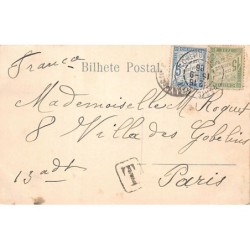 França
Bilhete Postal
Mademoiselle M Roques
8 Villa des Gobelins
13 adt
Paris
T